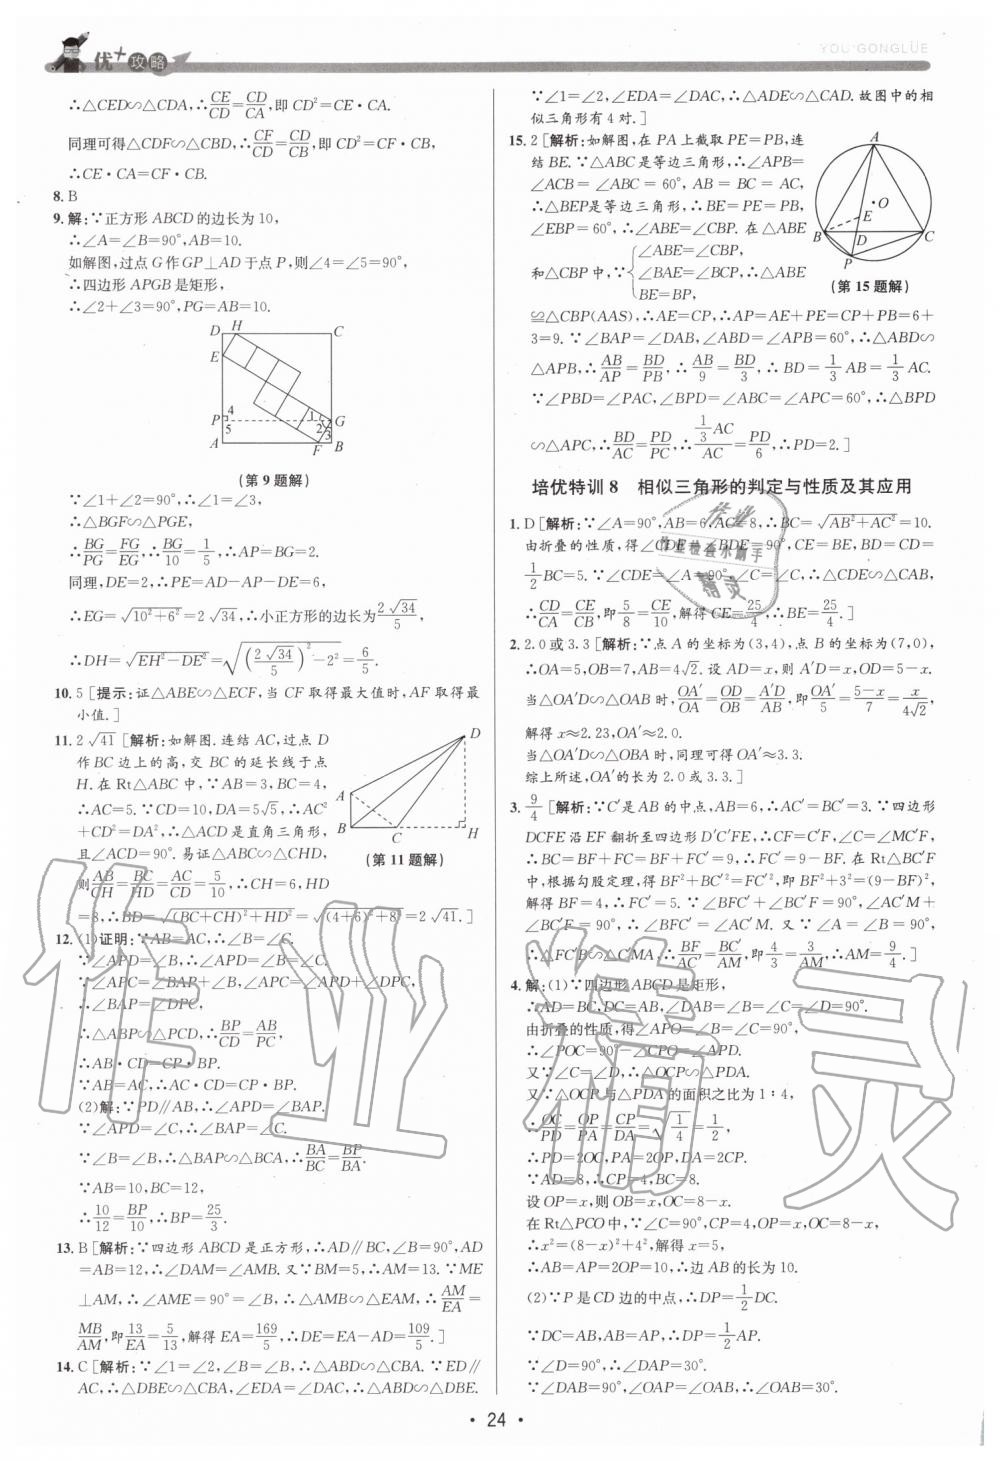 优+攻略
YOU GONGLÜE
∴△CED∽△CDA,∴CE/CD=CD/CA,即CD²=CE·CA.
同理可得△CDF∽△CBD,∴CF/CD=CD/CB,即CD²=CF·CB,
∴CE·CA=CF·CB.
8. B
9. 解:∵正方形ABCD的边长为10,
∴∠A=∠B=90°,AB=10.
如解图,过点G作GP⊥AD于点P,则∠4=∠5=90°,
∴四边形APGB是矩形,
∴∠2+∠3=90°,PG=AB=10.
D H C
E
P 4 1 G
5 2 3
A F B
(第9题解)
∵∠1+∠2=90°,∴∠1=∠3,
∴△BGF∽△PGE,
∴BG/PG=FG/EG,∴BG/10=1/5,∴AP=BG=2.
同理,DE=2,∴PE=AD-AP-DE=6,
∴EG=√(10²+6²)=2√34,∴小正方形的边长为2√34/5,
∴DH=√(EH²-DE²)=√((2√34/5)²-2²)=6/5.
10. 5[提示:证△ABE∽△ECF,当CF取得最大值时,AF取得最
小值.]
11. 2√41[解析:如解图.连结AC,过点D
作BC边上的高,交BC的延长线于点
H.在Rt△ABC中,∵AB=3,BC=4,
∴AC=5.∵CD=10,DA=5√5,∴AC²
+CD²=DA²,∴△ACD是直角三角形,
且∠ACD=90°.易证△ABC∽△CHD,
则AB/CH=BC/HD=AC/CD=5/10,∴CH=6,HD
=8,∴BD=√((BC+CH)²+HD²)=√((4+6)²+8²)=2√41.]
D
A
B C H
(第11题解)
12. (1)证明:∵AB=AC,∴∠B=∠C.
∵∠APD=∠B,∴∠APD=∠B=∠C.
∵∠APC=∠BAP+∠B,∠APC=∠APD+∠DPC,
∴∠BAP=∠DPC,
∴△ABP∽△PCD,∴BP/CD=AB/PC,
∴AB·CD=CP·BP.
∵AB=AC,∴AC·CD=CP·BP.
(2)解:∵PD∥AB,∴∠APD=∠BAP.
∵∠APD=∠C,∴∠BAP=∠C.
∵∠B=∠B,∴△BAP∽△BCA,∴BA/BC=BP/BA.
∵AB=10,BC=12,
∴10/12=BP/10,∴BP=25/3.
13. B[解析:∵四边形ABCD是正方形,∴AD∥BC,∠B=90°,AD
=AB=12,∴∠DAM=∠AMB.又∵BM=5,∴AM=13.∵ME
⊥AM,∴∠AME=90°=∠B,∴△AMB∽△EAM,∴AM/EA=
MB/AM,即13/EA=5/13,解得EA=169/5,∴DE=EA-AD=109/5.]
14. C[解析:∵∠1=∠2,∠B=∠B,∴△ABD∽△CBA.∵ED∥
AC,∴△DBE∽△CBA,∠EDA=∠DAC,∴△ABD∽△DBE.
∵∠1=∠2,∠EDA=∠DAC,∴△ADE∽△CAD.故图中的相
似三角形有4对.]
15. 2[解析:如解图,在PA上截取PE=PB,连
结BE.∵△ABC是等边三角形,∴∠APB=
∠ACB=∠ABC=60°,AB=BC=AC,
∴△BEP是等边三角形,∴BE=PE=PB,
∠EBP=60°,∴∠ABE=∠CBP.在△ABE
和△CBP中,∵{∠ABE=∠CBP,
∠BAE=∠BCP,∴△ABE
BE=BP,
≌△CBP(AAS),∴AE=CP,∴AP=AE+PE=CP+PB=6+
3=9.∵∠BAP=∠DAB,∠ABD=∠APB=60°,∴△ABD∽
△APB,∴AB/AP=BD/PB,∴AB/9=BD/3,∴BD=1/3AB=1/3AC.
∵∠PBD=∠PAC,∠BPD=∠ABC=∠APC=60°,∴△BPD
∽△APC,∴BD/AC=PD/PC,∴(1/3AC)/AC=PD/6,∴PD=2.]
A
O
E
B D C
P
(第15题解)
培优特训8 相似三角形的判定与性质及其应用
1. D[解析:∵∠A=90°,AB=6,AC=8,∴BC=√(AB²+AC²)=10.
由折叠的性质,得∠CDE=∠BDE=90°,CE=BE,BD=CD=
1/2BC=5.∵∠CDE=∠A=90°,∠C=∠C,∴△CDE∽△CAB,
∴CD/CA=CE/CB,即5/8=CE/10,解得CE=25/4,∴BE=25/4.]
2. 2.0或3.3[解析:∵点A的坐标为(3,4),点B的坐标为(7,0),
∴OA=5,OB=7,AB=4√2.设AD=x,则A′D=x,OD=5-x.
当△OA′D∽△OAB时,OA′/OA=OD/OB=A′D/AB,即OA′/5=5-x/7=x/4√2,
解得x≈2.23,OA′≈2.0.
当△OA′D∽△OBA时,同理可得OA′≈3.3.
综上所述,OA′的长为2.0或3.3.]
3. 9/4[解析:∵C′是AB的中点,AB=6,∴AC′=BC′=3.∵四边形
DCFE沿EF翻折至四边形D′C′FE,∴CF=C′F,∠C=∠MC′F,
∴BC=BF+FC=BF+FC′=9,∴FC′=9-BF.在Rt△BC′F
中,根据勾股定理,得BF²+BC′²=FC′²,即BF²+3²=(9-BF)²,
解得BF=4,∴FC′=5.∵∠BFC′+∠BC′F=90°,∠AC′M+
∠BC′F=90°,∴∠BFC′=∠AC′M.又∵∠A=∠B=
90°,∴△FC′B∽△C′MA,∴BF/AC′=BC′/AM,即4/3=3/AM,∴AM=9/4.]
4. 解:(1)∵四边形ABCD是矩形,
∴AD=BC,DC=AB,∠DAB=∠B=∠C=∠D=90°.
由折叠的性质,得∠APO=∠B=∠C=90°.
∴∠POC=90°-∠CPO=∠APD.
又∵∠C=∠D,∴△OCP∽△PDA.
又∵△OCP与△PDA的面积之比为1:4,
∴OC/PD=OP/PA=CP/DA=√(1/4)=1/2,
∴PD=2OC,PA=2OP,DA=2CP.
∵DA=8,∴CP=4,BC=8.
设OP=x,则OB=x,OC=8-x.
在Rt△PCO中,∵∠C=90°,CP=4,OP=x,OC=8-x,
∴x²=(8-x)²+4²,解得x=5,
∴AB=AP=2OP=10,∴边AB的长为10.
(2)∵P是CD边的中点,∴DP=1/2DC.
∵DC=AB,AB=AP,∴DP=1/2AP.
∵∠D=90°,∴∠DAP=30°.
∵∠DAB=90°,∠OAP=∠OAB,∴∠OAB=30°.
·24·
作业精灵